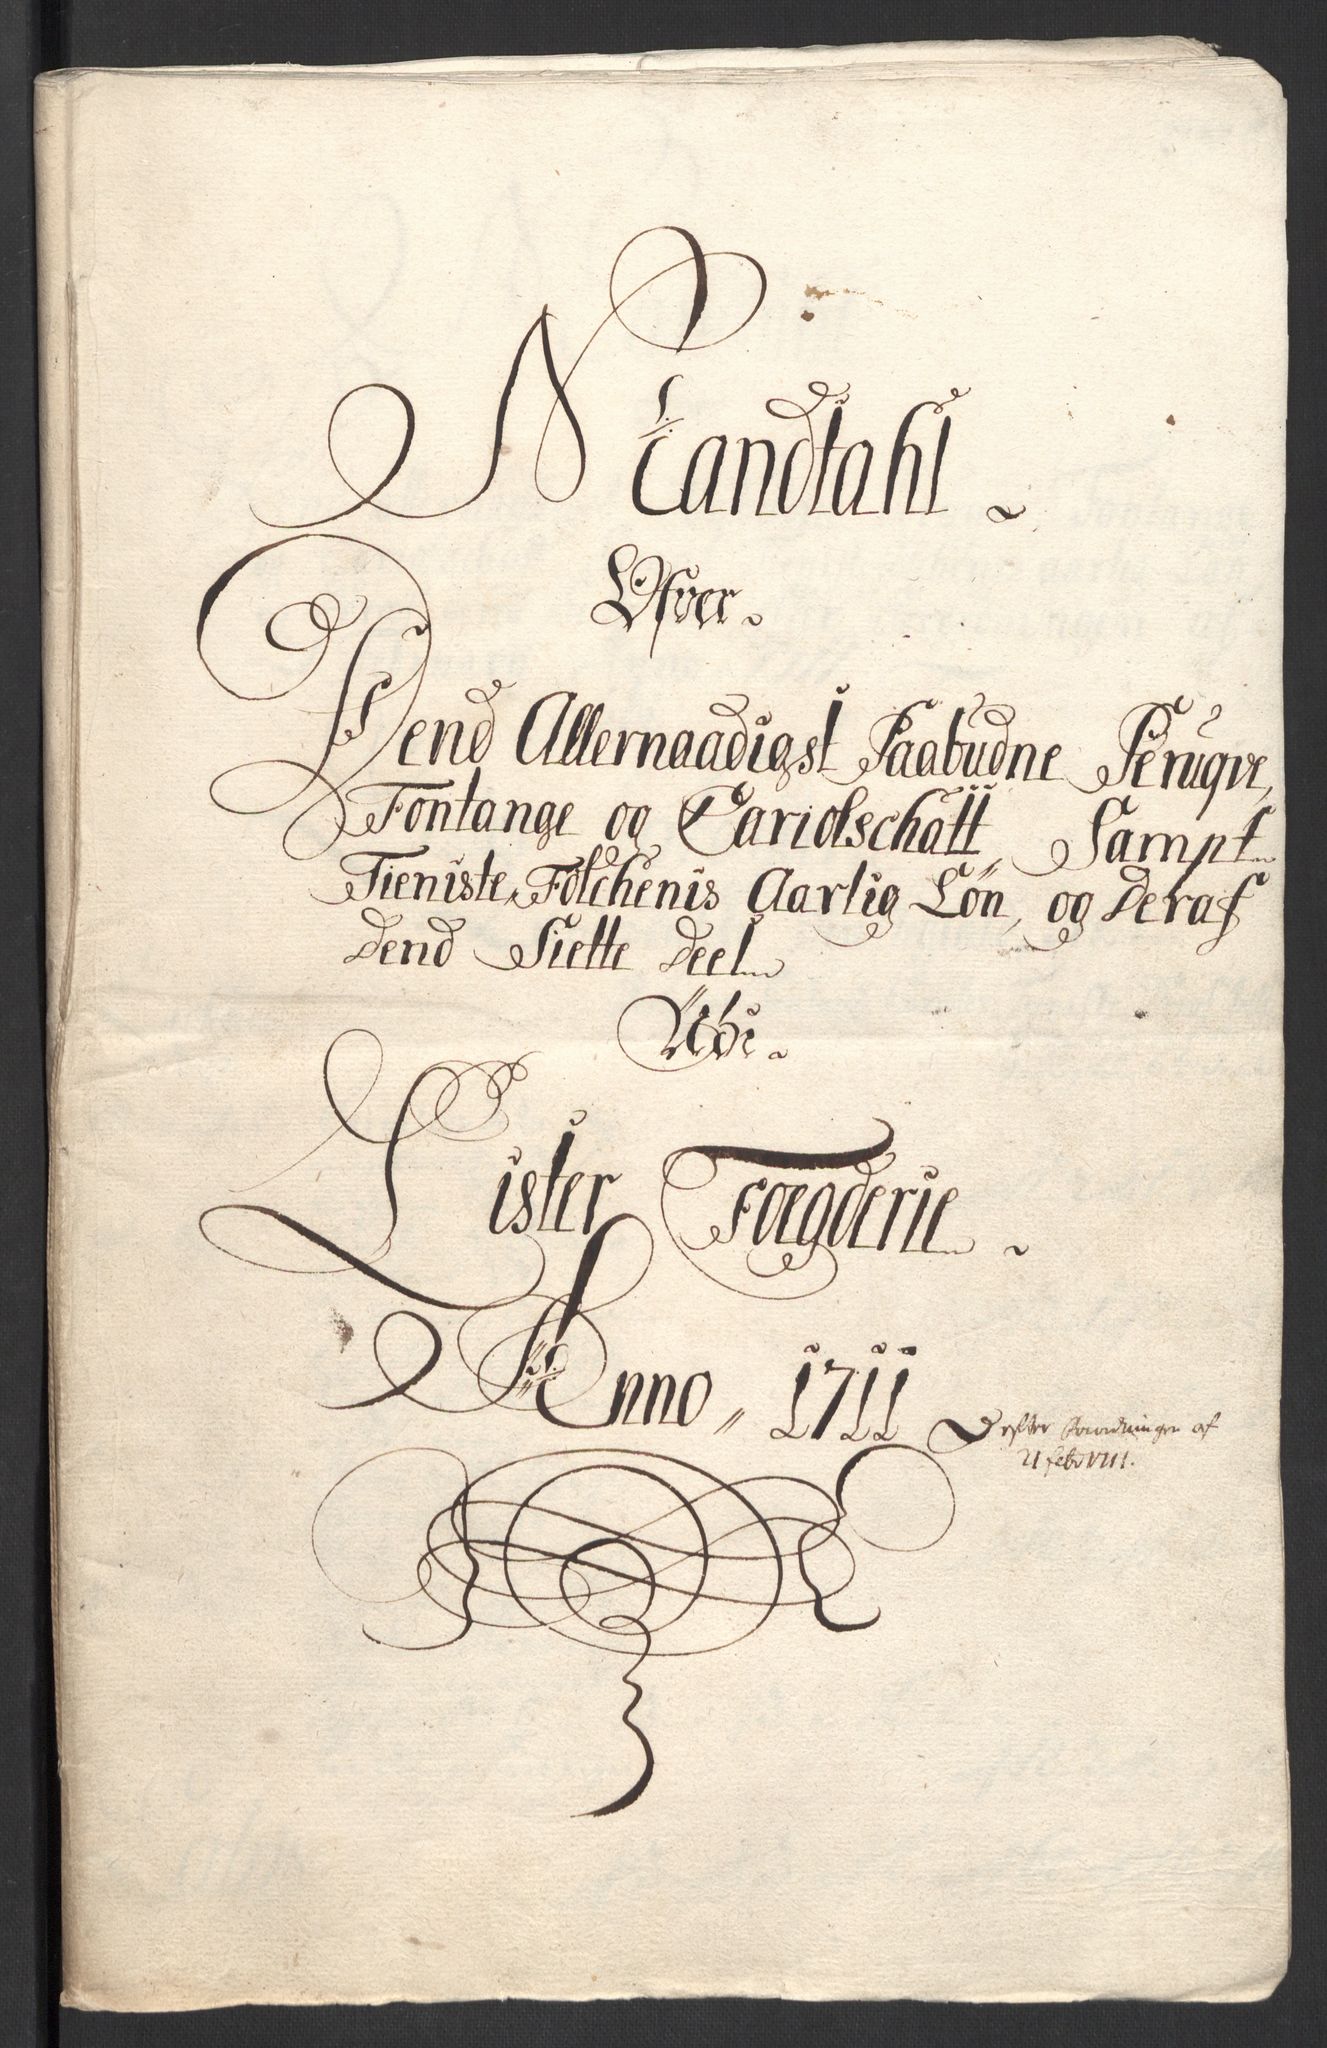 Mandtahl
Ofver
Dend Allernaadigst Paabudne Peruqve,
Fontange og Cariolschatt, Sampt
Tieniste Folchenis Aarlig Løn, og Deraf
Dend Siette Deel
Udi
Lister Foegderie
Anno 1711
efter Forordningen af
21 febr 1711.